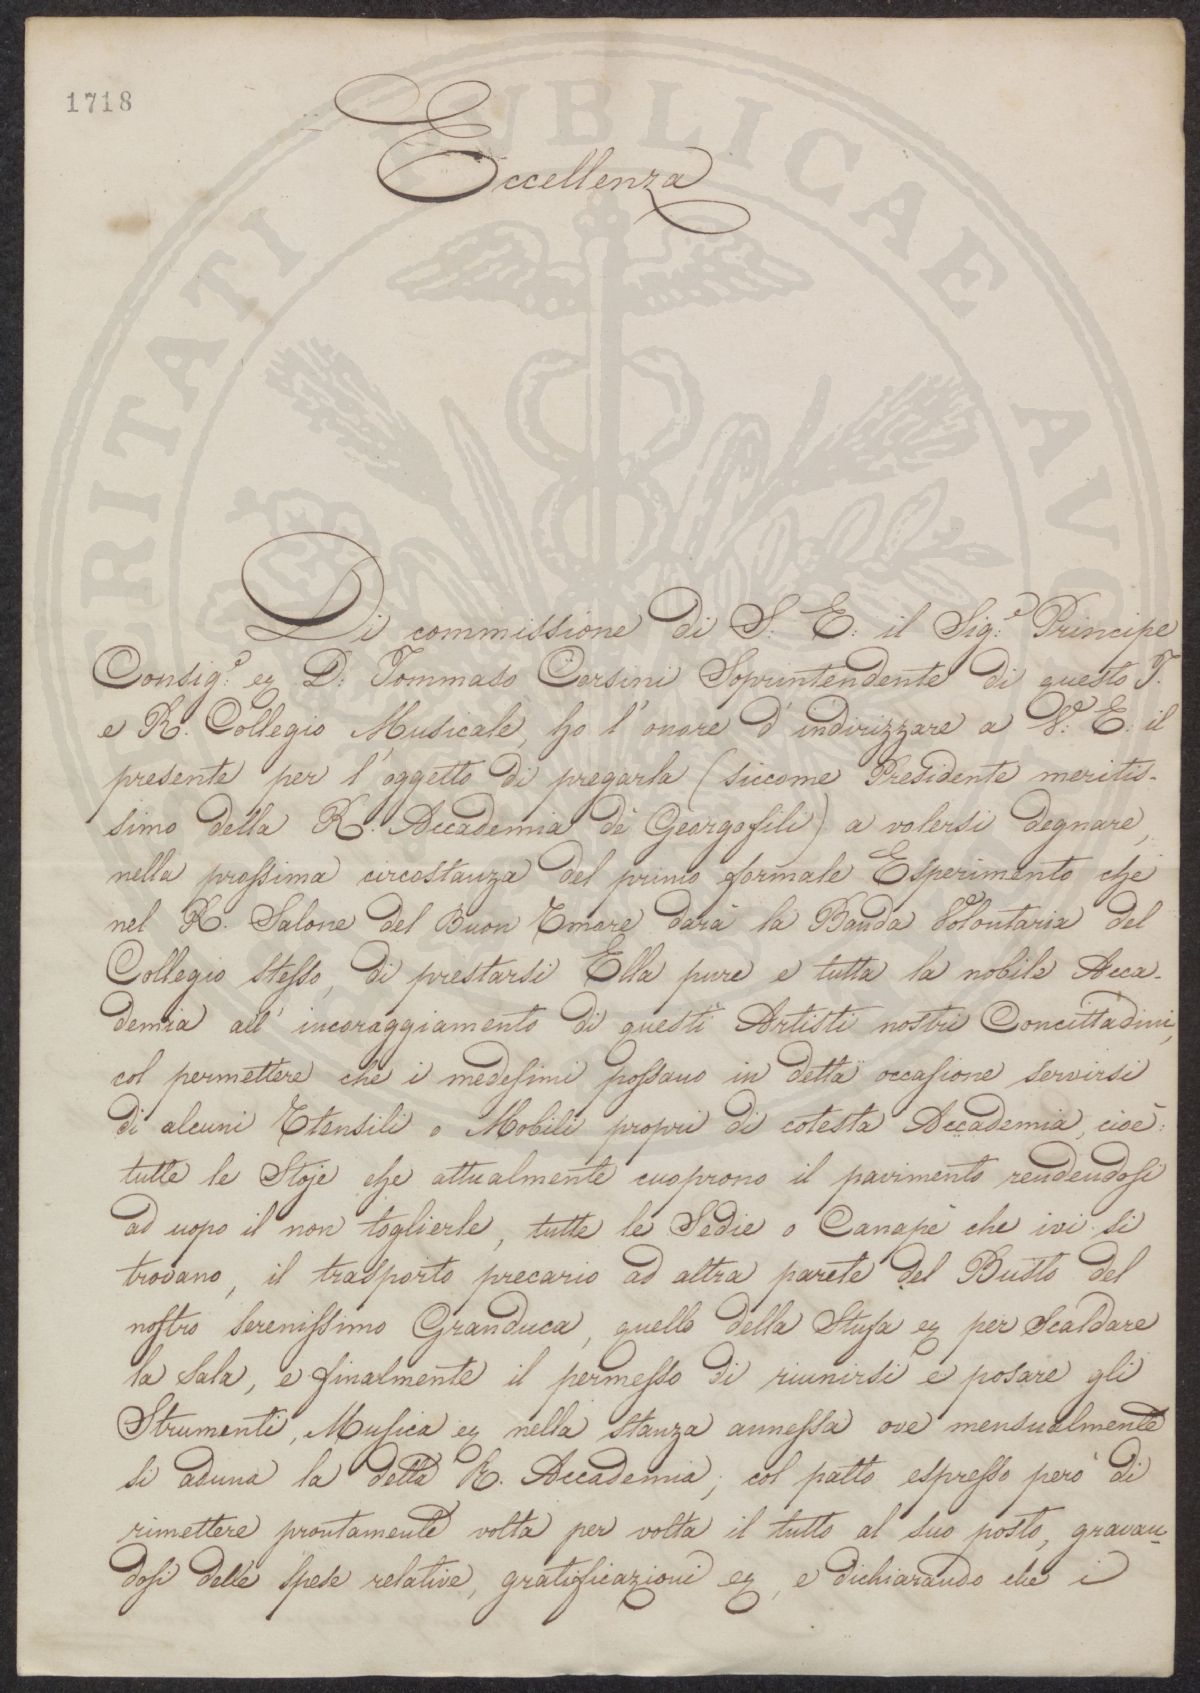 1718
Eccellenza
Di commissione di S. E. il Sig.e Principe
Consig.e eg D. Tommaso Corsini Soprintendente di questo I.
e R. Collegio Musicale, ho l'onore d'indirizzare a V. E. il
presente per l'oggetto di pregarla (siccome Presidente meritis-
simo della R. Accademia de Georgofili) a volersi degnare,
nella prossima circostanza del primo formale Esperimento che
nel R. Salone del Buon Umore darà la Banda Volontaria del
Collegio stesso, di prestarsi Ella pure e tutta la nobile Acca-
demia all'incoraggiamento di questi Artisti nostri Concittadini,
col permettere che i medesimi possano in detta occasione servirsi
di alcuni Utensili o Mobili propri di cotesta Accademia, cioè:
tutte le Stoje che attualmente cuoprono il pavimento rendendosi
ad uopo il non toglierle, tutte le Sedie o Canapè che ivi si
trovano, il trasporto precario ad altra parete del Busto del
nostro Serenissimo Granduca, quello della Stufa eg per Scaldare
la Sala, e finalmente il permesso di riunirsi e posare gli
Strumenti, Musica eg nella stanza annessa ove mensualmente
si aduna la detta R. Accademia; col patto espresso però di
rimettere prontamente volta per volta il tutto al suo posto, gravan-
dosi delle spese relative, gratificazioni eg, e dichiarando che i
MERITATI PUBLICAE